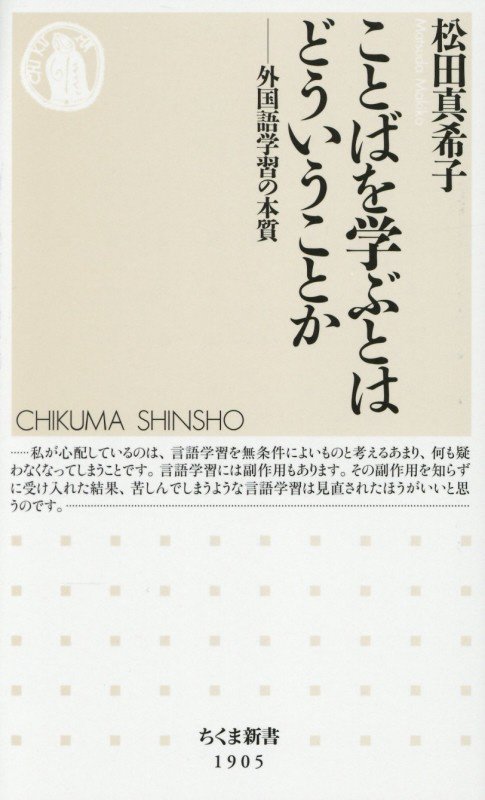 松田真希子
Matsuda Makiko
ことばを学ぶとは
どういうことか
──外国語学習の本質
CHIKUMA
CHIKUMA SHINSHO
……私が心配しているのは、言語学習を無条件によいものと考えるあまり、何も疑
わなくなってしまうことです。言語学習には副作用もあります。その副作用を知らず
に受け入れた結果、苦しんでしまうような言語学習は見直されたほうがいいと思
うのです。……
ちくま新書
1905